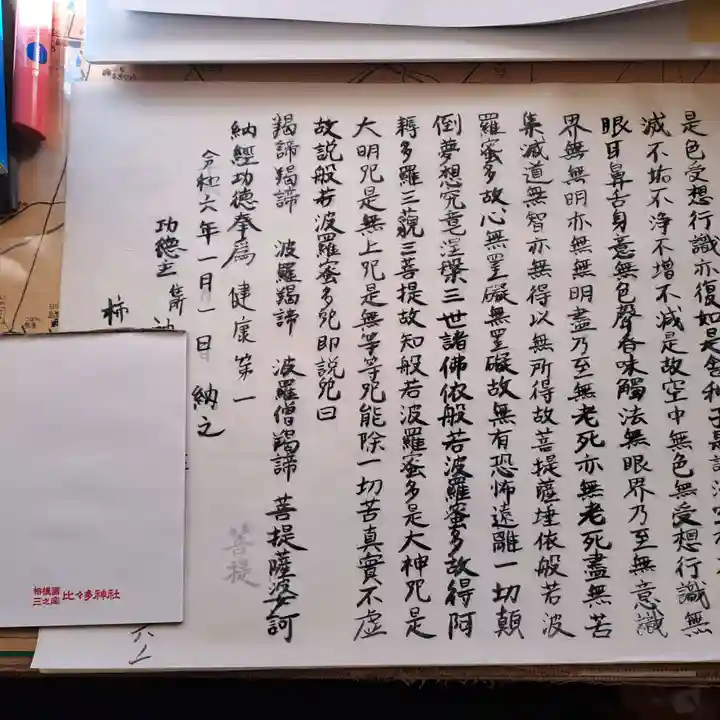 是色受想行識亦復如是舍利子是諸法空相不
滅不垢不浄不増不減是故空中無色無受想行識無
眼耳鼻舌身意無色聲香味觸法無眼界乃至無意識
界無無明亦無無明盡乃至無老死亦無老死盡無苦
集滅道無智亦無得以無所得故菩提薩埵依般若波
羅蜜多故心無罣礙無罣礙故無有恐怖遠離一切顛
倒夢想究竟涅槃三世諸佛依般若波羅蜜多故得阿
耨多羅三藐三菩提故知般若波羅蜜多是大神咒是
大明咒是無上咒是無等等咒能除一切苦真實不虚
故説般若波羅蜜多咒即説咒曰
羯諦羯諦 波羅羯諦 波羅僧羯諦 菩提薩婆訶
菩提
納經功德奉爲 健康第一
令和六年一月一日 納之
功徳主 住所
柿
相模國三之宮 比々多神社